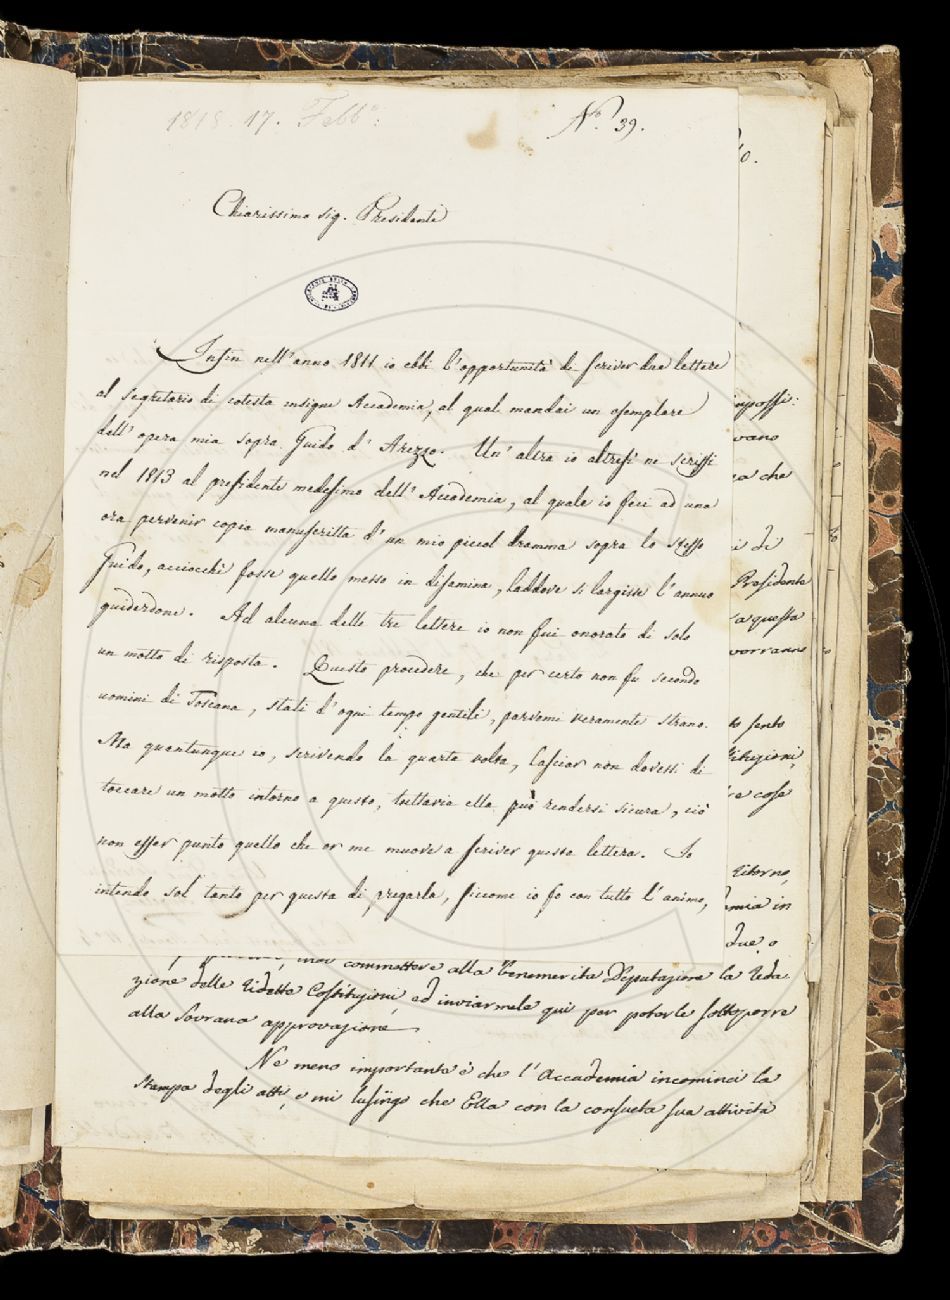 1818. 17. Febb.º:
Nº. 39.
Chiarissimo sig. Presidente
Insin nell'anno 1811 io ebbi l'opportunità di scriver due lettere
al segretario di cotesta insigne Accademia, al qual mandai un esemplare
dell'opera mia sopra Guido d'Arezzo. Un'altra io altresì ne scrissi
nel 1813 al presidente medesimo dell'Accademia, al quale io feci ad una
ora pervenir copia manuscritta d'un mio piccol dramma sopra lo stesso
Guido, acciocchè fosse quello messo in disamina, laddove si largisse l'annuo
guiderdone. Ad alcuna delle tre lettere io non fui onorato di solo
un motto di risposta. Questo procedere, che per certo non fu secondo
uomini di Toscana, stati d'ogni tempo gentili, parvemi veramente strano.
Ma quantunque io, scrivendo la quarta volta, lasciar non dovessi di
toccare un motto intorno a questo, tuttavia ella può rendersi sicura, ciò
non esser punto quello che or me muove a scriver questa lettera. Io
intendo sol tanto per questa di pregarla, siccome io fo con tutto l'animo,
commettere alla Benemerita Deputazione la reda
zione delle ridette Costituzioni, ed inviarmele qui per poterle sottoporre
alla Sovrana approvazione
Ne meno importante è che l'Accademia incominci la
stampa degli atti, e mi lusingo che Ella con la consueta sua attività
vano
che
di
Presidente
a questa
vorranno
to sento
cosa
ritorno,
in
due, o